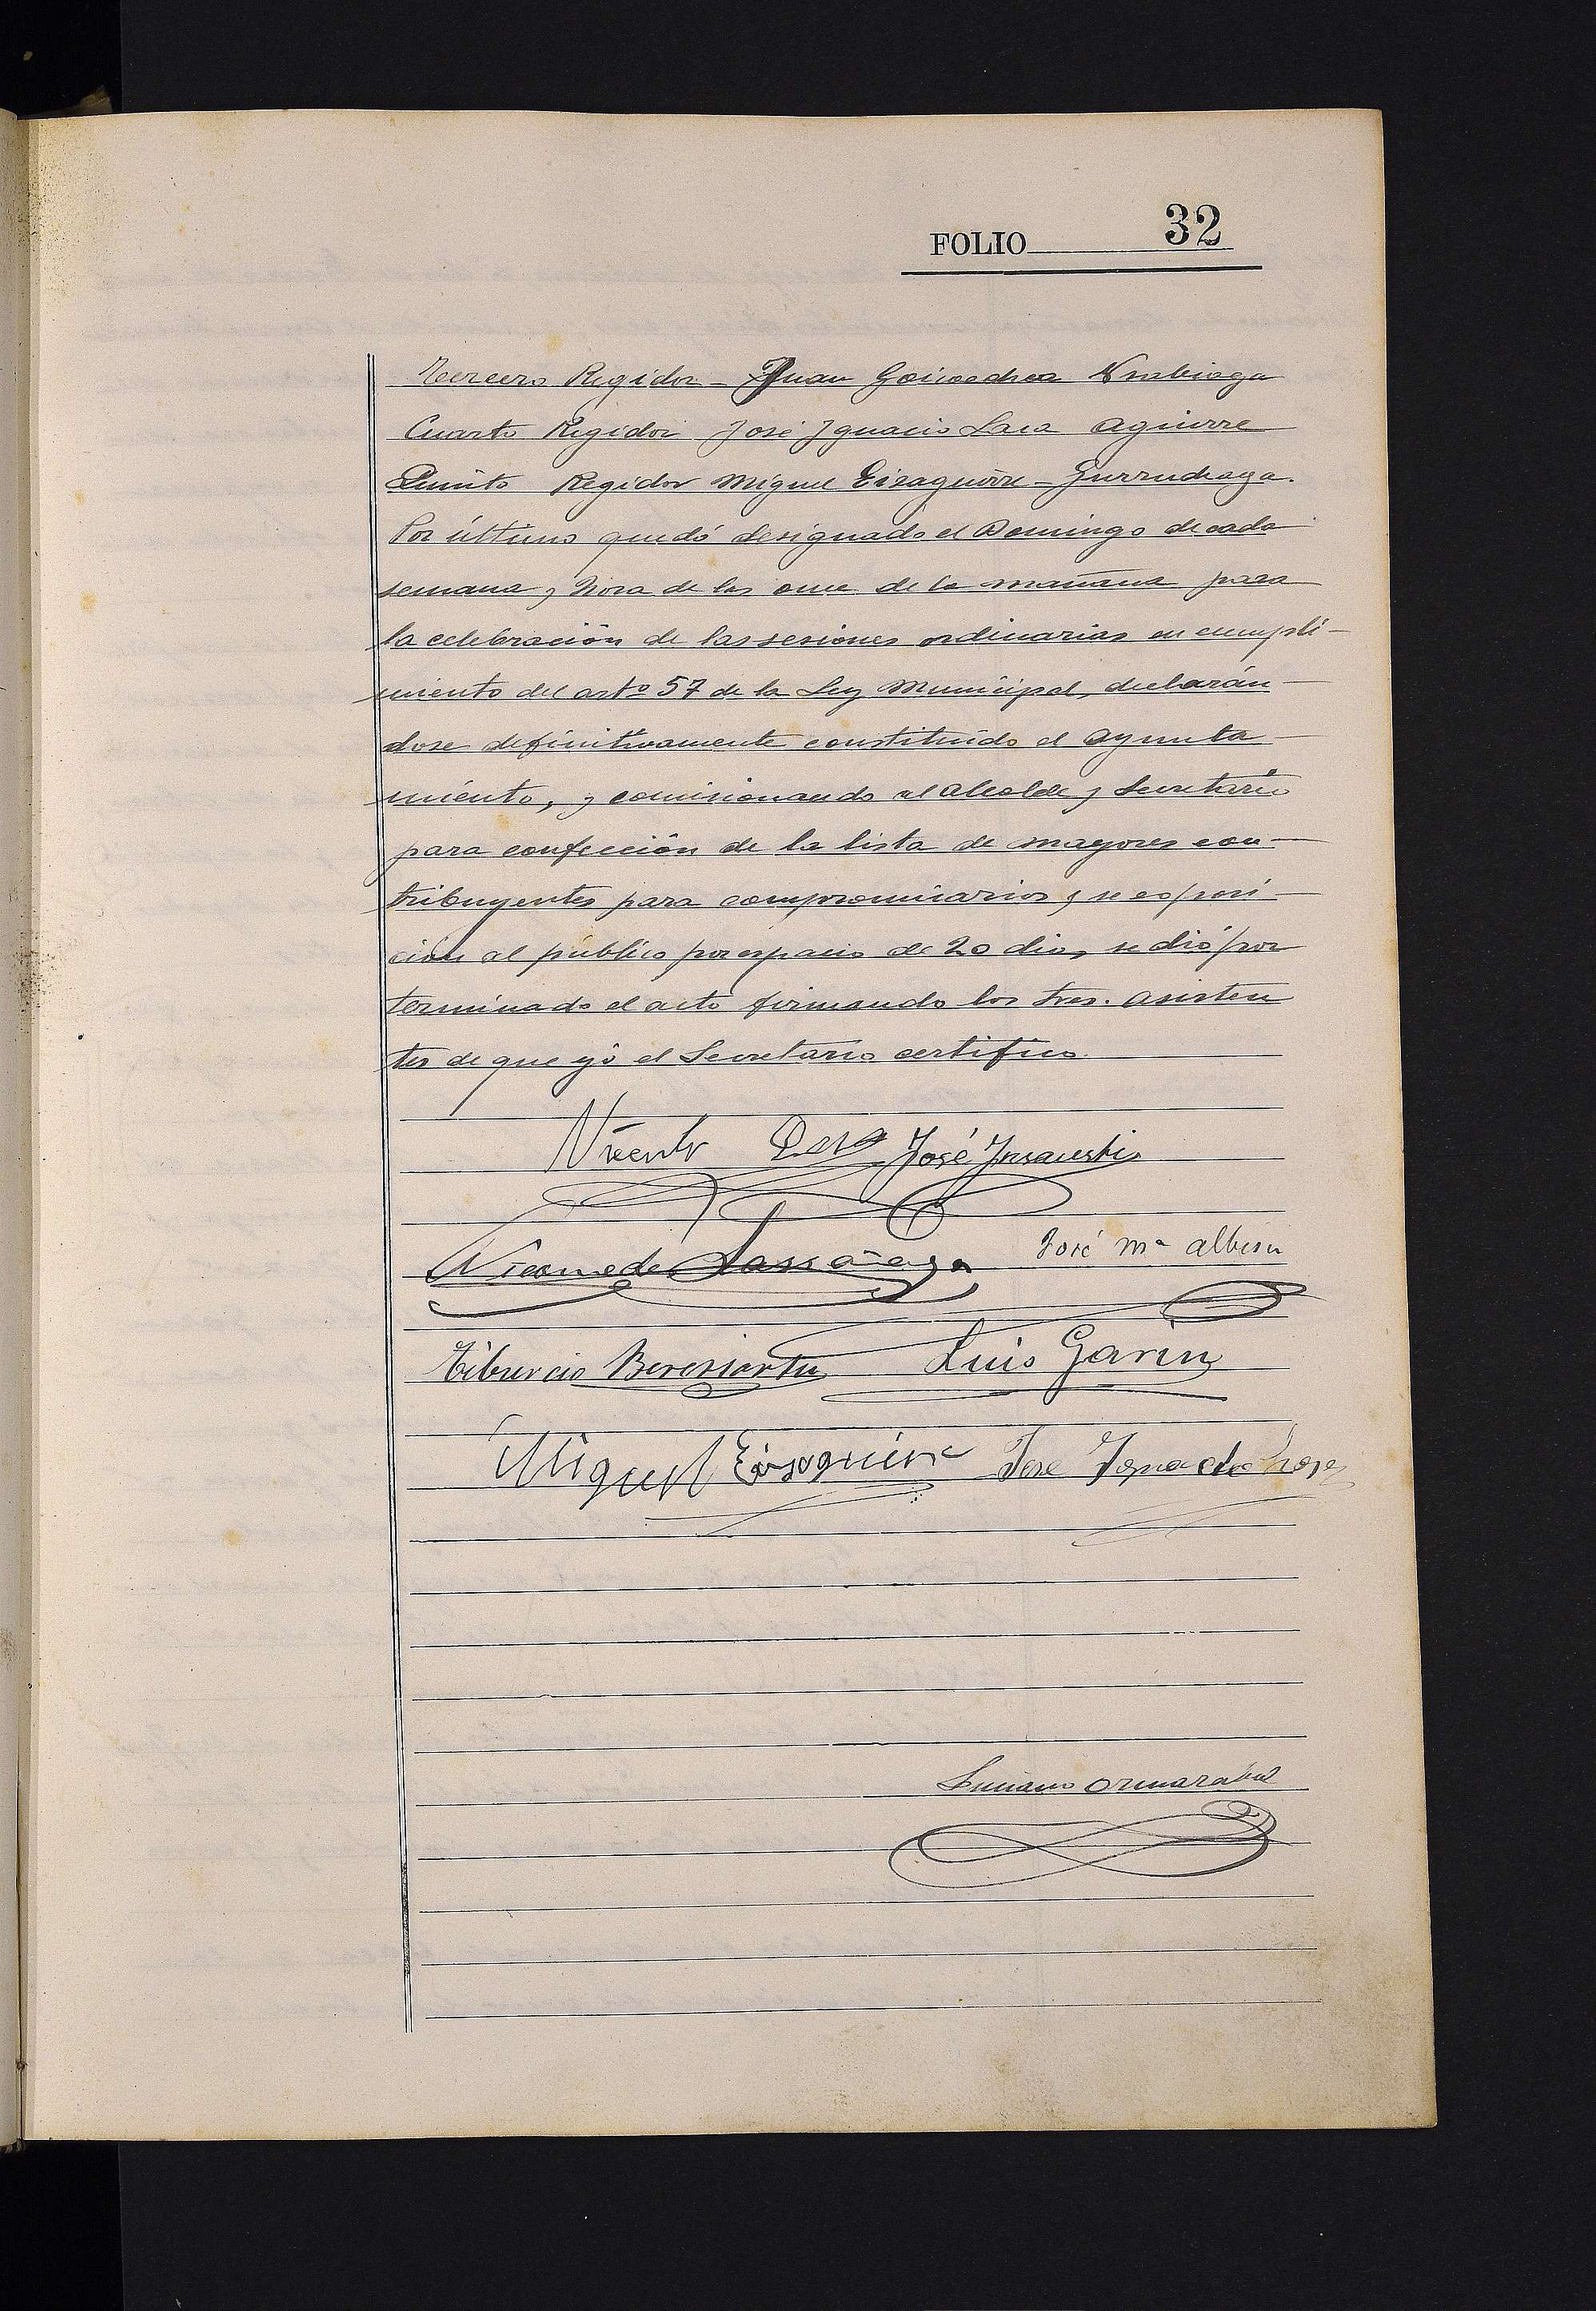 FOLIO 32
Tercero Regidor - Juan Goicoechea Urabiaga
Cuarto Regidor José Ignacio Lasa Aguirre
Quinto Regidor Miguel Eizaguirre - Gurruchaga.
Por último quedó designado el Domingo de cada
semana y hora de las once de la mañana para
la celebración de las sesiones ordinarias en cumpli-
miento del artº 57 de la Ley Municipal, declarán-
dose definitivamente constituido el Ayunta-
miento, y comisionando al Alcalde y Secretario
para confección de la lista de mayores con-
tribuyentes para compromisarios y se exposi-
ción al público por espacio de 20 dias, se dió por
terminado el acto firmando los Sres. asisten
tes de que yó el Secretario certifico.
Vicente José Insausti
Nicomedes José Mª Albisu
Tiburcio Beresiartu Luis Garin
Miguel Eizaguirre José Ignacio Lasa
Luciano Ormazabal